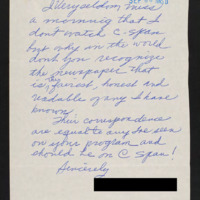 I very seldom miss
a morning that I
dont watch C-Span
but why in the world
dont you recognize
the newspaper that
is, fairest, honest and
readable of any I have
known.
Their correspondence
are equal to any Ive seen
on your program and
should be on C-Span!
Sincerely